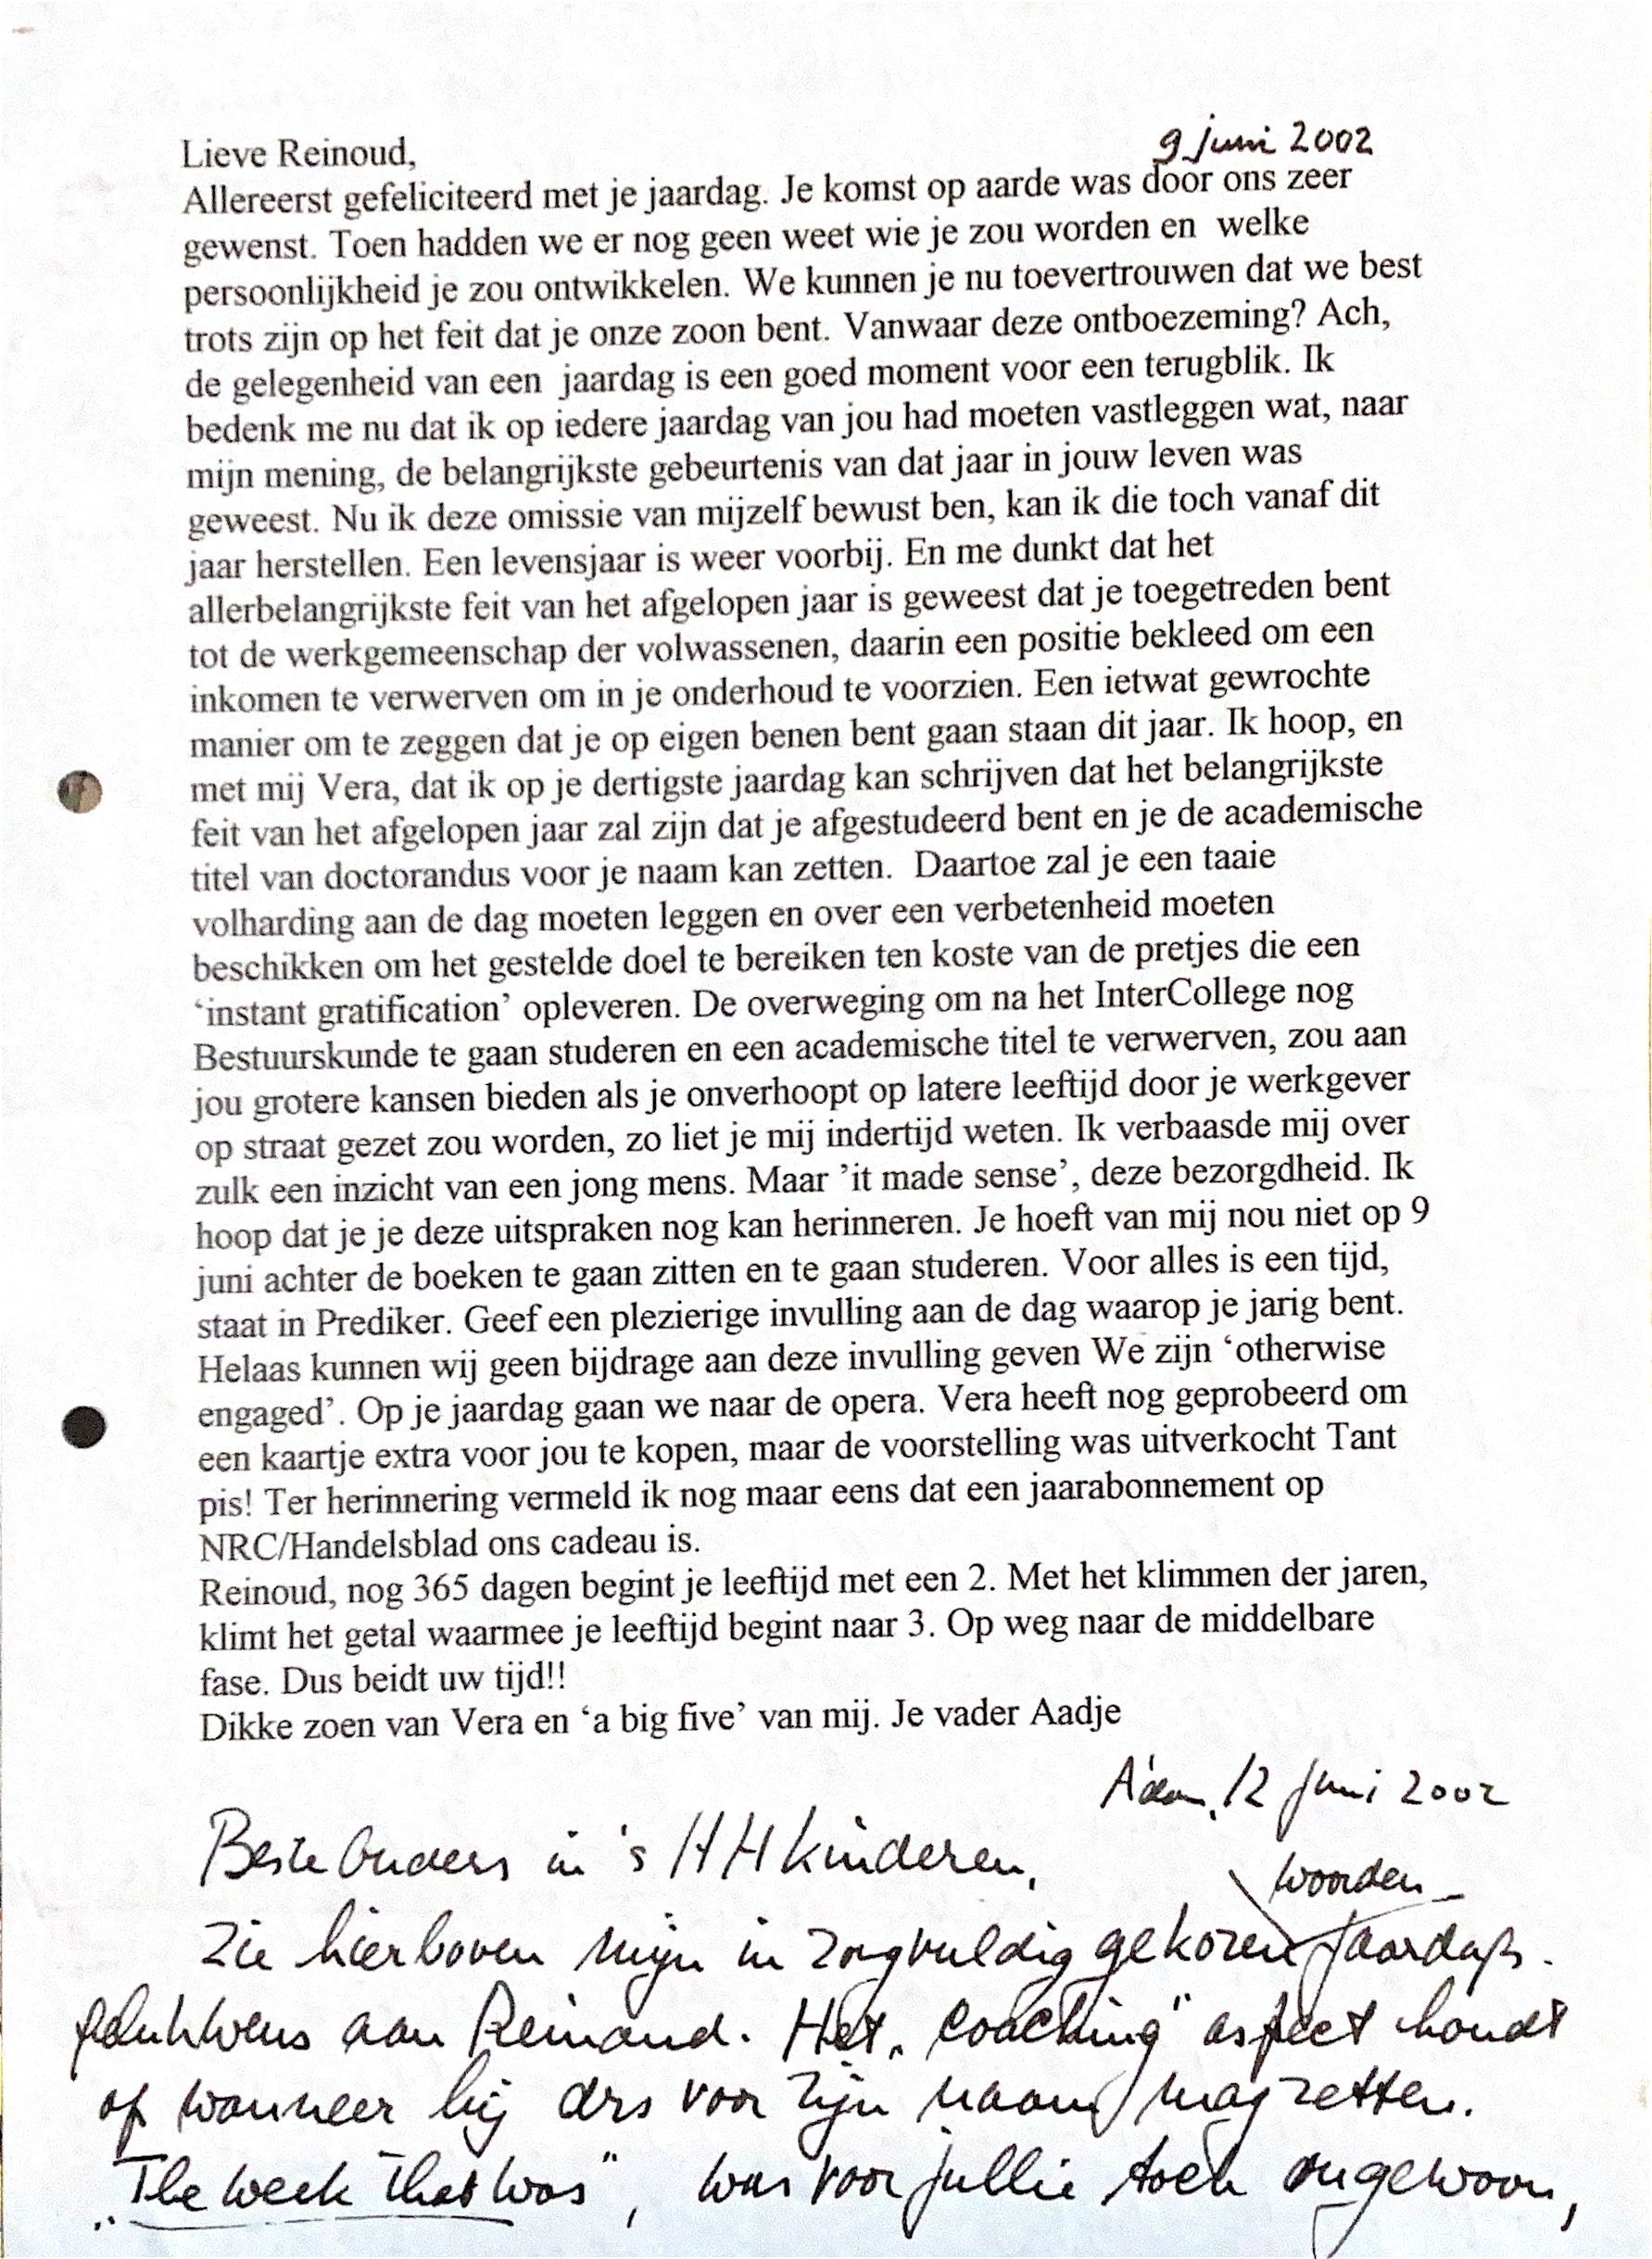 9 juni 2002
Lieve Reinoud,
Allereerst gefeliciteerd met je jaardag. Je komst op aarde was door ons zeer
gewenst. Toen hadden we er nog geen weet wie je zou worden en welke
persoonlijkheid je zou ontwikkelen. We kunnen je nu toevertrouwen dat we best
trots zijn op het feit dat je onze zoon bent. Vanwaar deze ontboezeming? Ach,
de gelegenheid van een jaardag is een goed moment voor een terugblik. Ik
bedenk me nu dat ik op iedere jaardag van jou had moeten vastleggen wat, naar
mijn mening, de belangrijkste gebeurtenis van dat jaar in jouw leven was
geweest. Nu ik deze omissie van mijzelf bewust ben, kan ik die toch vanaf dit
jaar herstellen. Een levensjaar is weer voorbij. En me dunkt dat het
allerbelangrijkste feit van het afgelopen jaar is geweest dat je toegetreden bent
tot de werkgemeenschap der volwassenen, daarin een positie bekleed om een
inkomen te verwerven om in je onderhoud te voorzien. Een ietwat gewrochte
manier om te zeggen dat je op eigen benen bent gaan staan dit jaar. Ik hoop, en
met mij Vera, dat ik op je dertigste jaardag kan schrijven dat het belangrijkste
feit van het afgelopen jaar zal zijn dat je afgestudeerd bent en je de academische
titel van doctorandus voor je naam kan zetten. Daartoe zal je een taaie
volharding aan de dag moeten leggen en over een verbetenheid moeten
beschikken om het gestelde doel te bereiken ten koste van de pretjes die een
‘instant gratification’ opleveren. De overweging om na het InterCollege nog
Bestuurskunde te gaan studeren en een academische titel te verwerven, zou aan
jou grotere kansen bieden als je onverhoopt op latere leeftijd door je werkgever
op straat gezet zou worden, zo liet je mij indertijd weten. Ik verbaasde mij over
zulk een inzicht van een jong mens. Maar ’it made sense’, deze bezorgdheid. Ik
hoop dat je je deze uitspraken nog kan herinneren. Je hoeft van mij nou niet op 9
juni achter de boeken te gaan zitten en te gaan studeren. Voor alles is een tijd,
staat in Prediker. Geef een plezierige invulling aan de dag waarop je jarig bent.
Helaas kunnen wij geen bijdrage aan deze invulling geven We zijn ‘otherwise
engaged’. Op je jaardag gaan we naar de opera. Vera heeft nog geprobeerd om
een kaartje extra voor jou te kopen, maar de voorstelling was uitverkocht Tant
pis! Ter herinnering vermeld ik nog maar eens dat een jaarabonnement op
NRC/Handelsblad ons cadeau is.
Reinoud, nog 365 dagen begint je leeftijd met een 2. Met het klimmen der jaren,
klimt het getal waarmee je leeftijd begint naar 3. Op weg naar de middelbare
fase. Dus beidt uw tijd!!
Dikke zoen van Vera en ‘a big five’ van mij. Je vader Aadje
A'dam, 12 juni 2002
Beste Ouders in 's HHkinderen,
woorden
Zie hierboven mijn in zorgvuldig gekozen jaardags-
gelukwens aan Reinoud. Het „coaching" aspect houdt
op wanneer hij drs voor zijn naam mag zetten.
„The week that was", was voor jullie toch ongewoon,